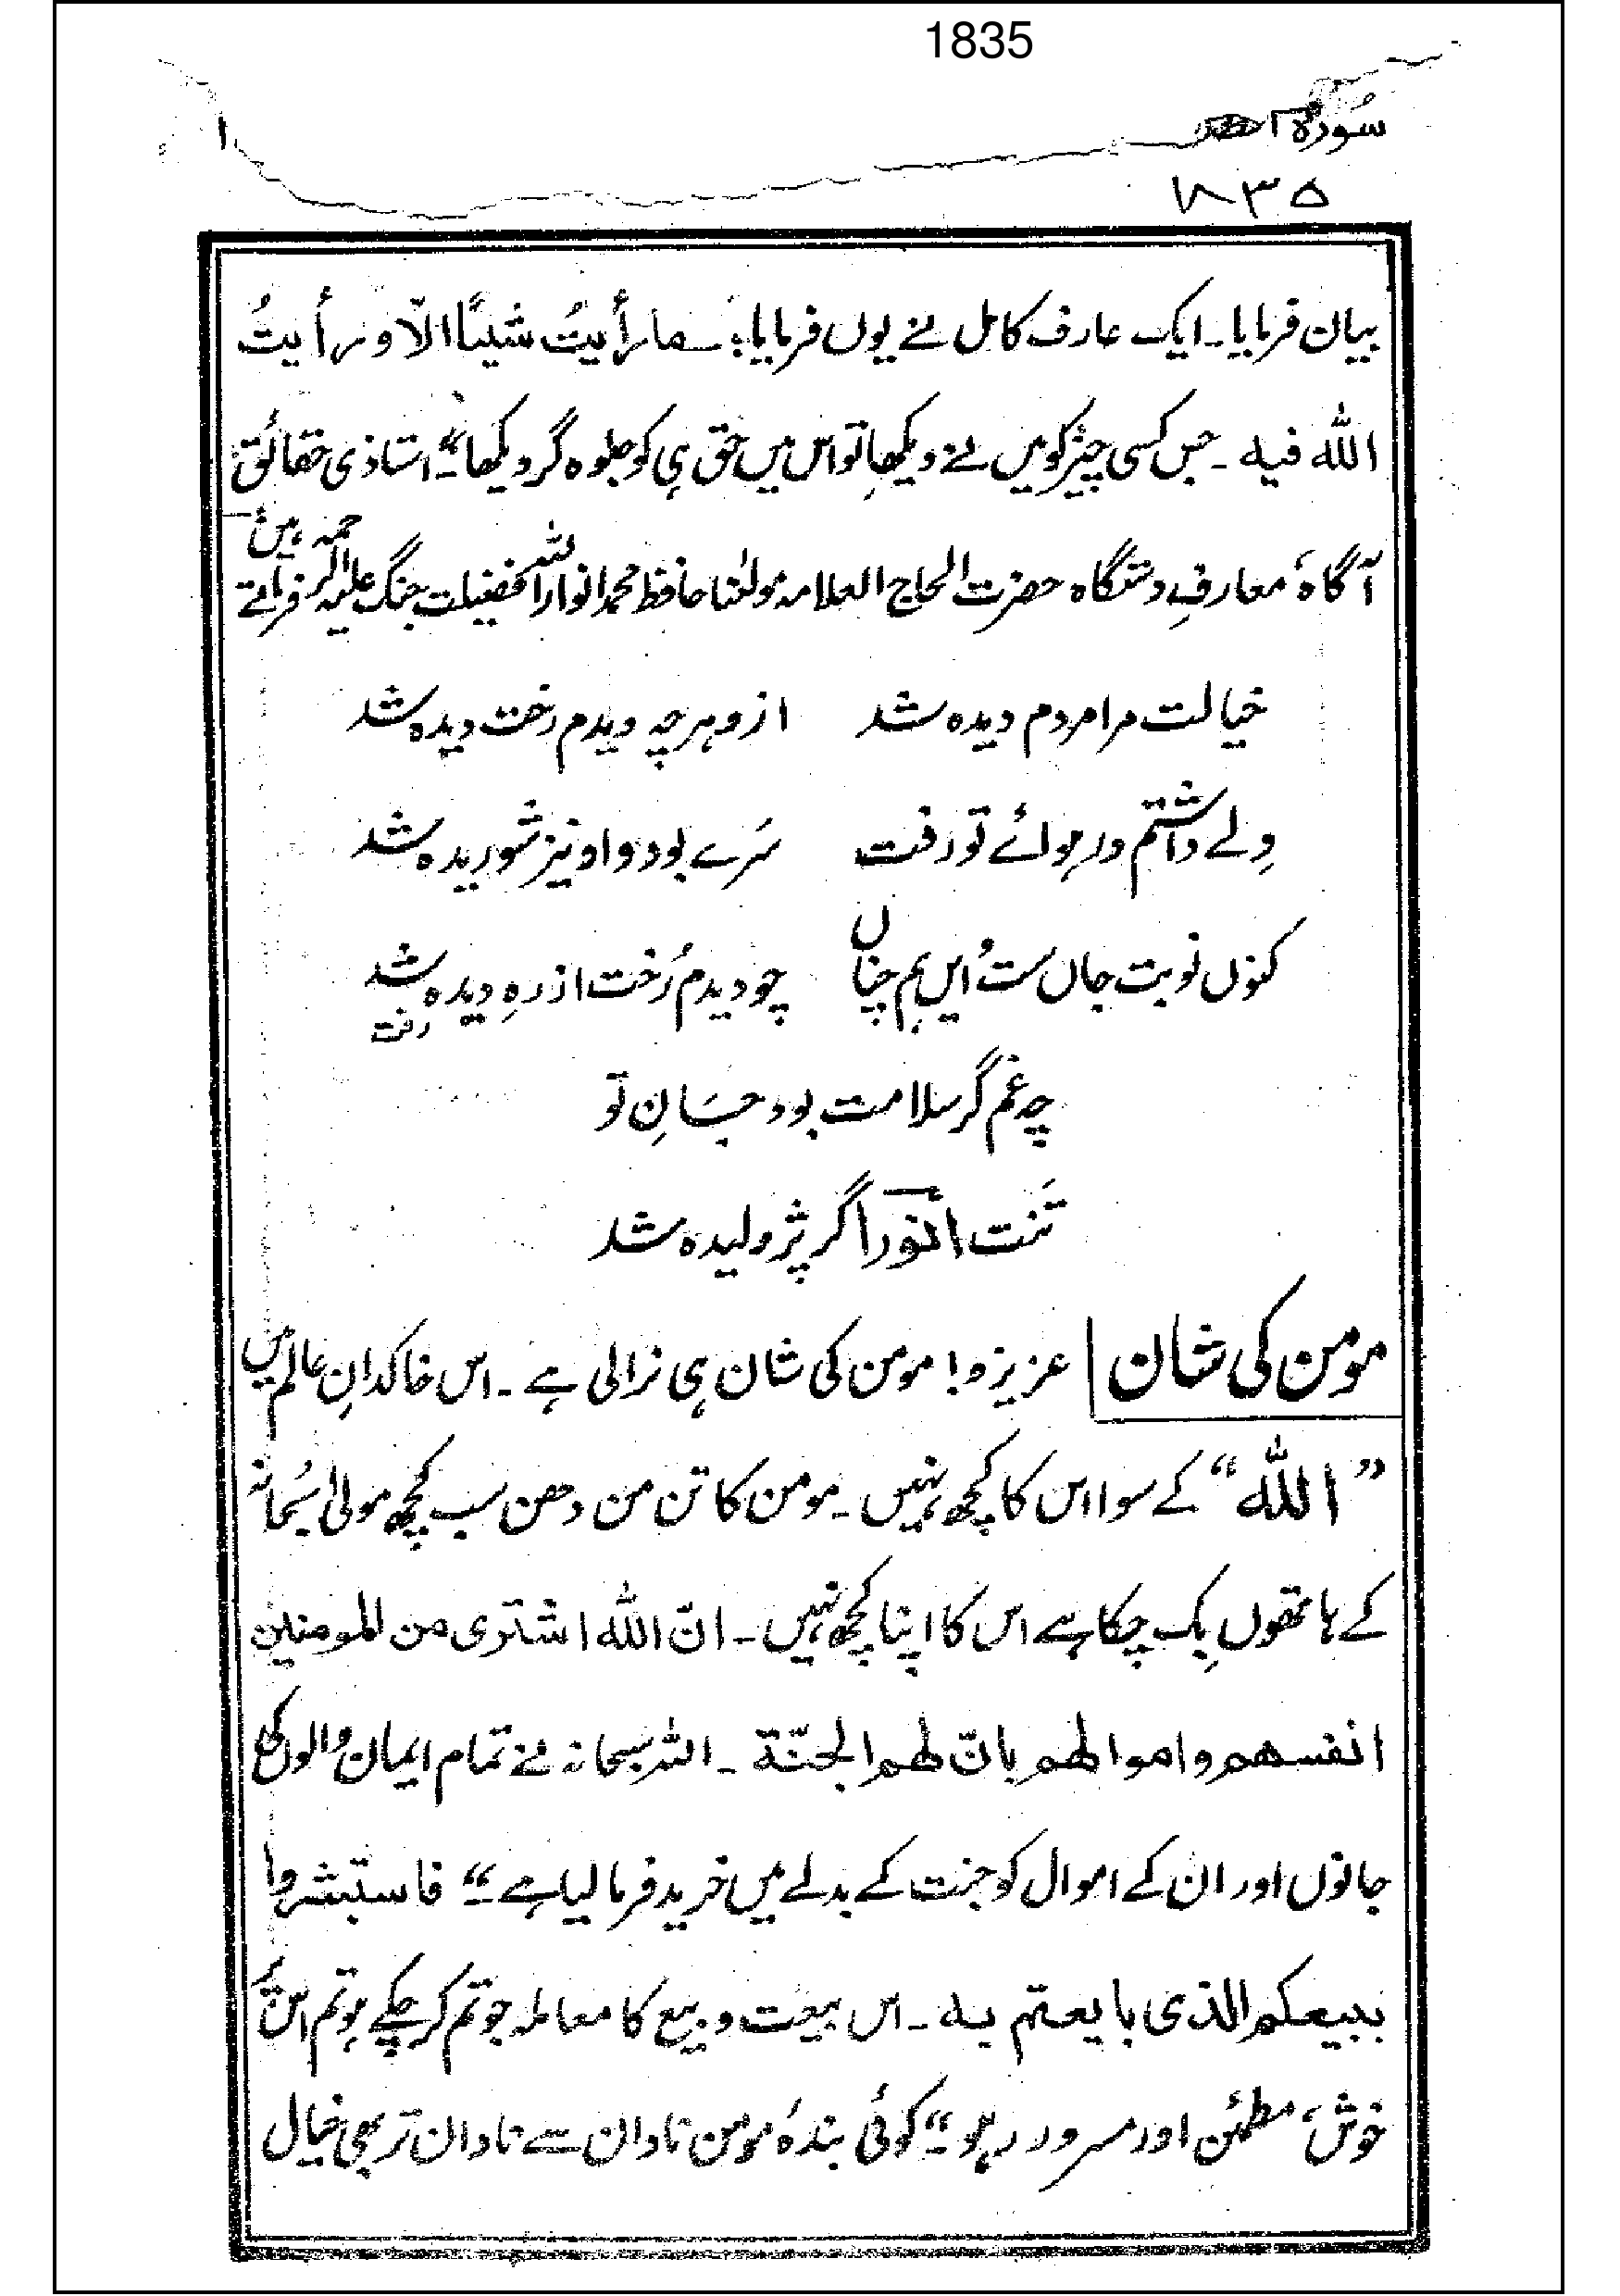 1835
سُورہ
۱۸۳۵
بیان فرمایا۔ ایک عارف کامل نے یوں فرمایا: ما رأیتُ شیئًا الّا ورأیتُ
اللہ فیہ ۔ جس کسی چیز کو میں نے دیکھا تو اس میں حق ہی کو جلوہ گر دیکھا"۔ استاذی حقائق
آگاہ، معارفِ دستگاہ حضرت الحاج العلامہ مولٰنا حافظ محمد انوار اللہ فضیلت جنگ علیہ الرحمہ فرماتے ہیں
خیالت مرا مردم دیدہ شد ازو ہرچہ دیدم رخت دیدہ شد
دِلے داشتم در ہوائے تو رفت سَرے بود و او نیز شوریدہ شد
کنوں نوبت جاں ست و ایں ہم چناں چو دیدم رُخت از رہِ دیدہ شد
رفت
چہ غم گر سلامت بود جَانِ تو
تَنت انورؔ اگر ژولیدہ شد
مومن کی شان عزیزو! مومن کی شان ہی نرالی ہے ۔ اس خاکدانِ عالم میں
"اللہ" کے سوا اس کا کچھ نہیں ۔ مومن کا تن من دھن سب کچھ مولیٰ سُبحانہ
کے ہاتھوں بِک چکا ہے اس کا اپنا کچھ نہیں ۔ انّ اللہ اشتری من المومنین
انفسھم واموالھم بانّ لھم الجنّة ۔ اللہ سبحانہ نے تمام ایمان والوں کی
جانوں اور ان کے اموال کو جنت کے بدلے میں خرید فرما لیا ہے"۔ فاستبشروا
ببیعکم الذی بایعتم بہ ۔ اس بیعت و بیع کا معاملہ جو تم کر چکے ہو تم اس پر
خوش، مطمئن اور مسرور رہو"۔ کوئی بندۂ مومن نادان سے نادان تر بھی خیال